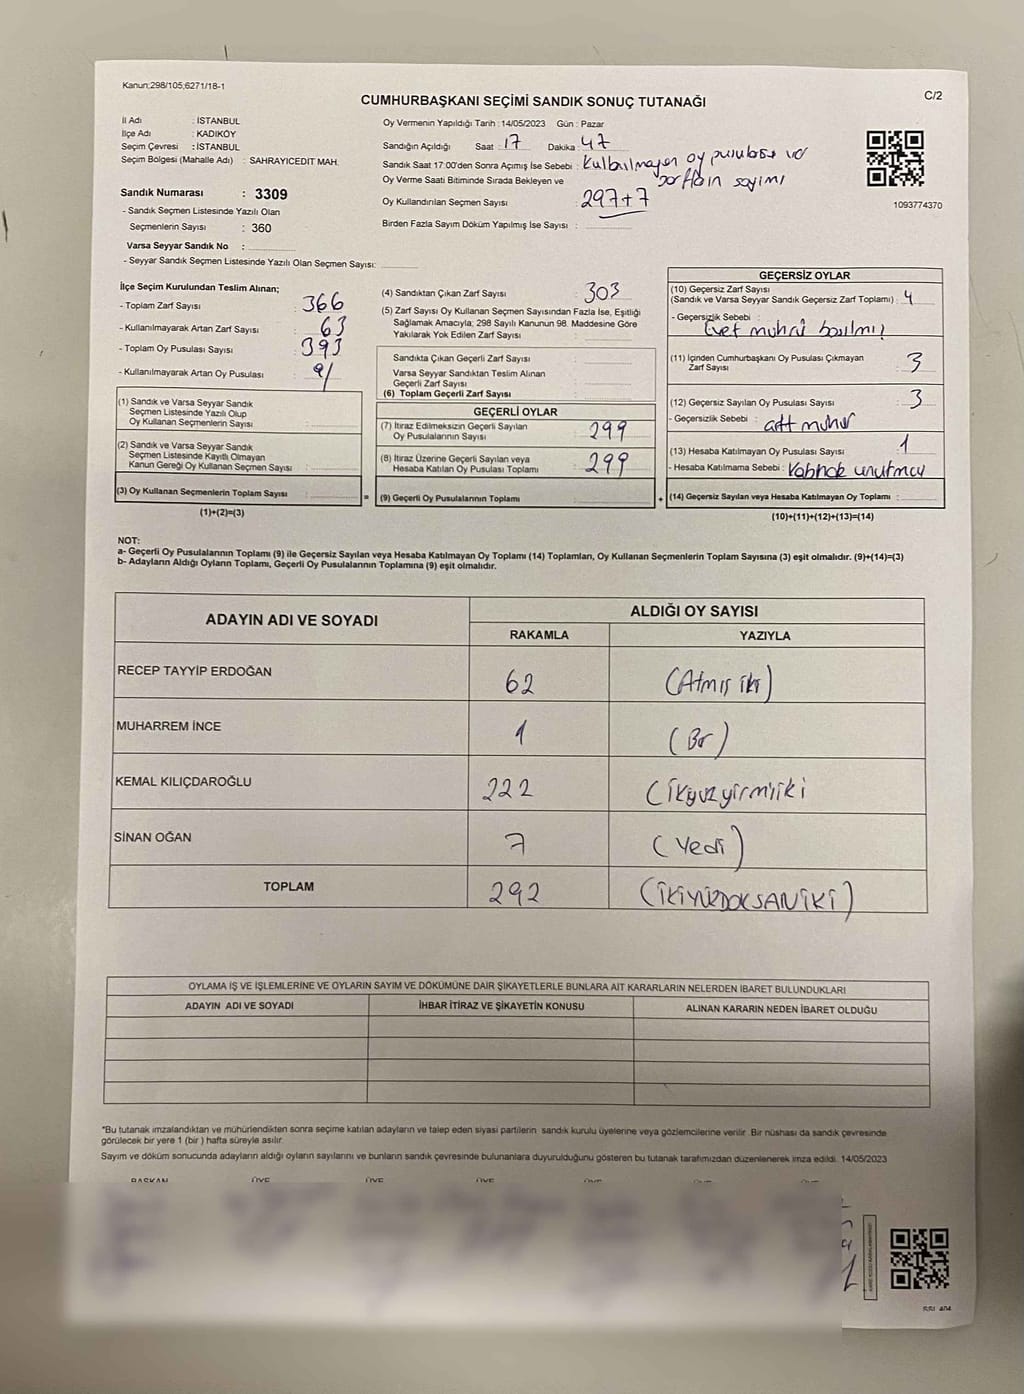 Kanun;298/105;6271/18-1
C/2
CUMHURBAŞKANI SEÇİMİ SANDIK SONUÇ TUTANAĞI
İl Adı : İSTANBUL
İlçe Adı : KADIKÖY
Seçim Çevresi : İSTANBUL
Seçim Bölgesi (Mahalle Adı) : SAHRAYICEDIT MAH.
Sandık Numarası : 3309
- Sandık Seçmen Listesinde Yazılı Olan
Seçmenlerin Sayısı : 360
Varsa Seyyar Sandık No :
- Seyyar Sandık Seçmen Listesinde Yazılı Olan Seçmen Sayısı:
Oy Vermenin Yapıldığı Tarih : 14/05/2023 Gün : Pazar
Sandığın Açıldığı Saat : 17 Dakika : 47
Sandık Saat 17:00'den Sonra Açımış İse Sebebi : oy pusulası
sayımı
Oy Verme Saati Bitiminde Sırada Bekleyen ve
Oy Kullandırılan Seçmen Sayısı : 297+7
Birden Fazla Sayım Döküm Yapılmış İse Sayısı :
1093774370
İlçe Seçim Kurulundan Teslim Alınan;
- Toplam Zarf Sayısı : 366
- Kullanılmayarak Artan Zarf Sayısı : 63
- Toplam Oy Pusulası Sayısı : 393
- Kullanılmayarak Artan Oy Pusulası :
(1) Sandık ve Varsa Seyyar Sandık
Seçmen Listesinde Yazılı Olup
Oy Kullanan Seçmenlerin Sayısı :
(2) Sandık ve Varsa Seyyar Sandık
Seçmen Listesinde Kayıtlı Olmayan
Kanun Gereği Oy Kullanan Seçmen Sayısı :
(3) Oy Kullanan Seçmenlerin Toplam Sayısı :
(1)+(2)=(3)
=
(4) Sandıktan Çıkan Zarf Sayısı : 303
(5) Zarf Sayısı Oy Kullanan Seçmen Sayısından Fazla İse, Eşitliği
Sağlamak Amacıyla; 298 Sayılı Kanunun 98. Maddesine Göre
Yakılarak Yok Edilen Zarf Sayısı :
Sandıkta Çıkan Geçerli Zarf Sayısı :
Varsa Seyyar Sandıktan Teslim Alınan
Geçerli Zarf Sayısı :
(6) Toplam Geçerli Zarf Sayısı :
GEÇERLİ OYLAR
(7) İtiraz Edilmeksizin Geçerli Sayılan
Oy Pusulalarının Sayısı : 299
(8) İtiraz Üzerine Geçerli Sayılan veya
Hesaba Katılan Oy Pusulası Toplamı : 299
(9) Geçerli Oy Pusulalarının Toplamı :
+
GEÇERSİZ OYLAR
(10) Geçersiz Zarf Sayısı
(Sandık ve Varsa Seyyar Sandık Geçersiz Zarf Toplamı) : 4
- Geçersizlik Sebebi :
Evet mührü basılmış
(11) İçinden Cumhurbaşkanı Oy Pusulası Çıkmayan
Zarf Sayısı : 3
(12) Geçersiz Sayılan Oy Pusulası Sayısı : 3
- Geçersizlik Sebebi : mühür
(13) Hesaba Katılmayan Oy Pusulası Sayısı : 1
- Hesaba Katılmama Sebebi :
(14) Geçersiz Sayılan veya Hesaba Katılmayan Oy Toplamı :
(10)+(11)+(12)+(13)=(14)
NOT:
a- Geçerli Oy Pusulalarının Toplamı (9) ile Geçersiz Sayılan veya Hesaba Katılmayan Oy Toplamı (14) Toplamları, Oy Kullanan Seçmenlerin Toplam Sayısına (3) eşit olmalıdır. (9)+(14)=(3)
b- Adayların Aldığı Oyların Toplamı, Geçerli Oy Pusulalarının Toplamına (9) eşit olmalıdır.
ADAYIN ADI VE SOYADI
ALDIĞI OY SAYISI
RAKAMLA YAZIYLA
RECEP TAYYİP ERDOĞAN 62 (Atmış iki)
MUHARREM İNCE 1 (Bir)
KEMAL KILIÇDAROĞLU 222 (ikiyüzyirmiiki
SİNAN OĞAN 7 (Yedi)
TOPLAM 292 (İKİYÜZDOKSANİKİ)
OYLAMA İŞ VE İŞLEMLERİNE VE OYLARIN SAYIM VE DÖKÜMÜNE DAİR ŞİKAYETLERLE BUNLARA AİT KARARLARIN NELERDEN İBARET BULUNDUKLARI
ADAYIN ADI VE SOYADI İHBAR İTİRAZ VE ŞİKAYETİN KONUSU ALINAN KARARIN NEDEN İBARET OLDUĞU
*Bu tutanak imzalandıktan ve mühürlendikten sonra seçime katılan adayların ve talep eden siyasi partilerin sandık kurulu üyelerine veya gözlemcilerine verilir. Bir nüshası da sandık çevresinde
görülecek bir yere 1 (bir ) hafta süreyle asılır.
Sayım ve döküm sonucunda adayların aldığı oyların sayılarını ve bunların sandık çevresinde bulunanlara duyurulduğunu gösteren bu tutanak tarafımızdan düzenlenerek imza edildi. 14/05/2023
BAŞKAN ÜYE ÜYE ÜYE ÜYE ÜYE ÜYE